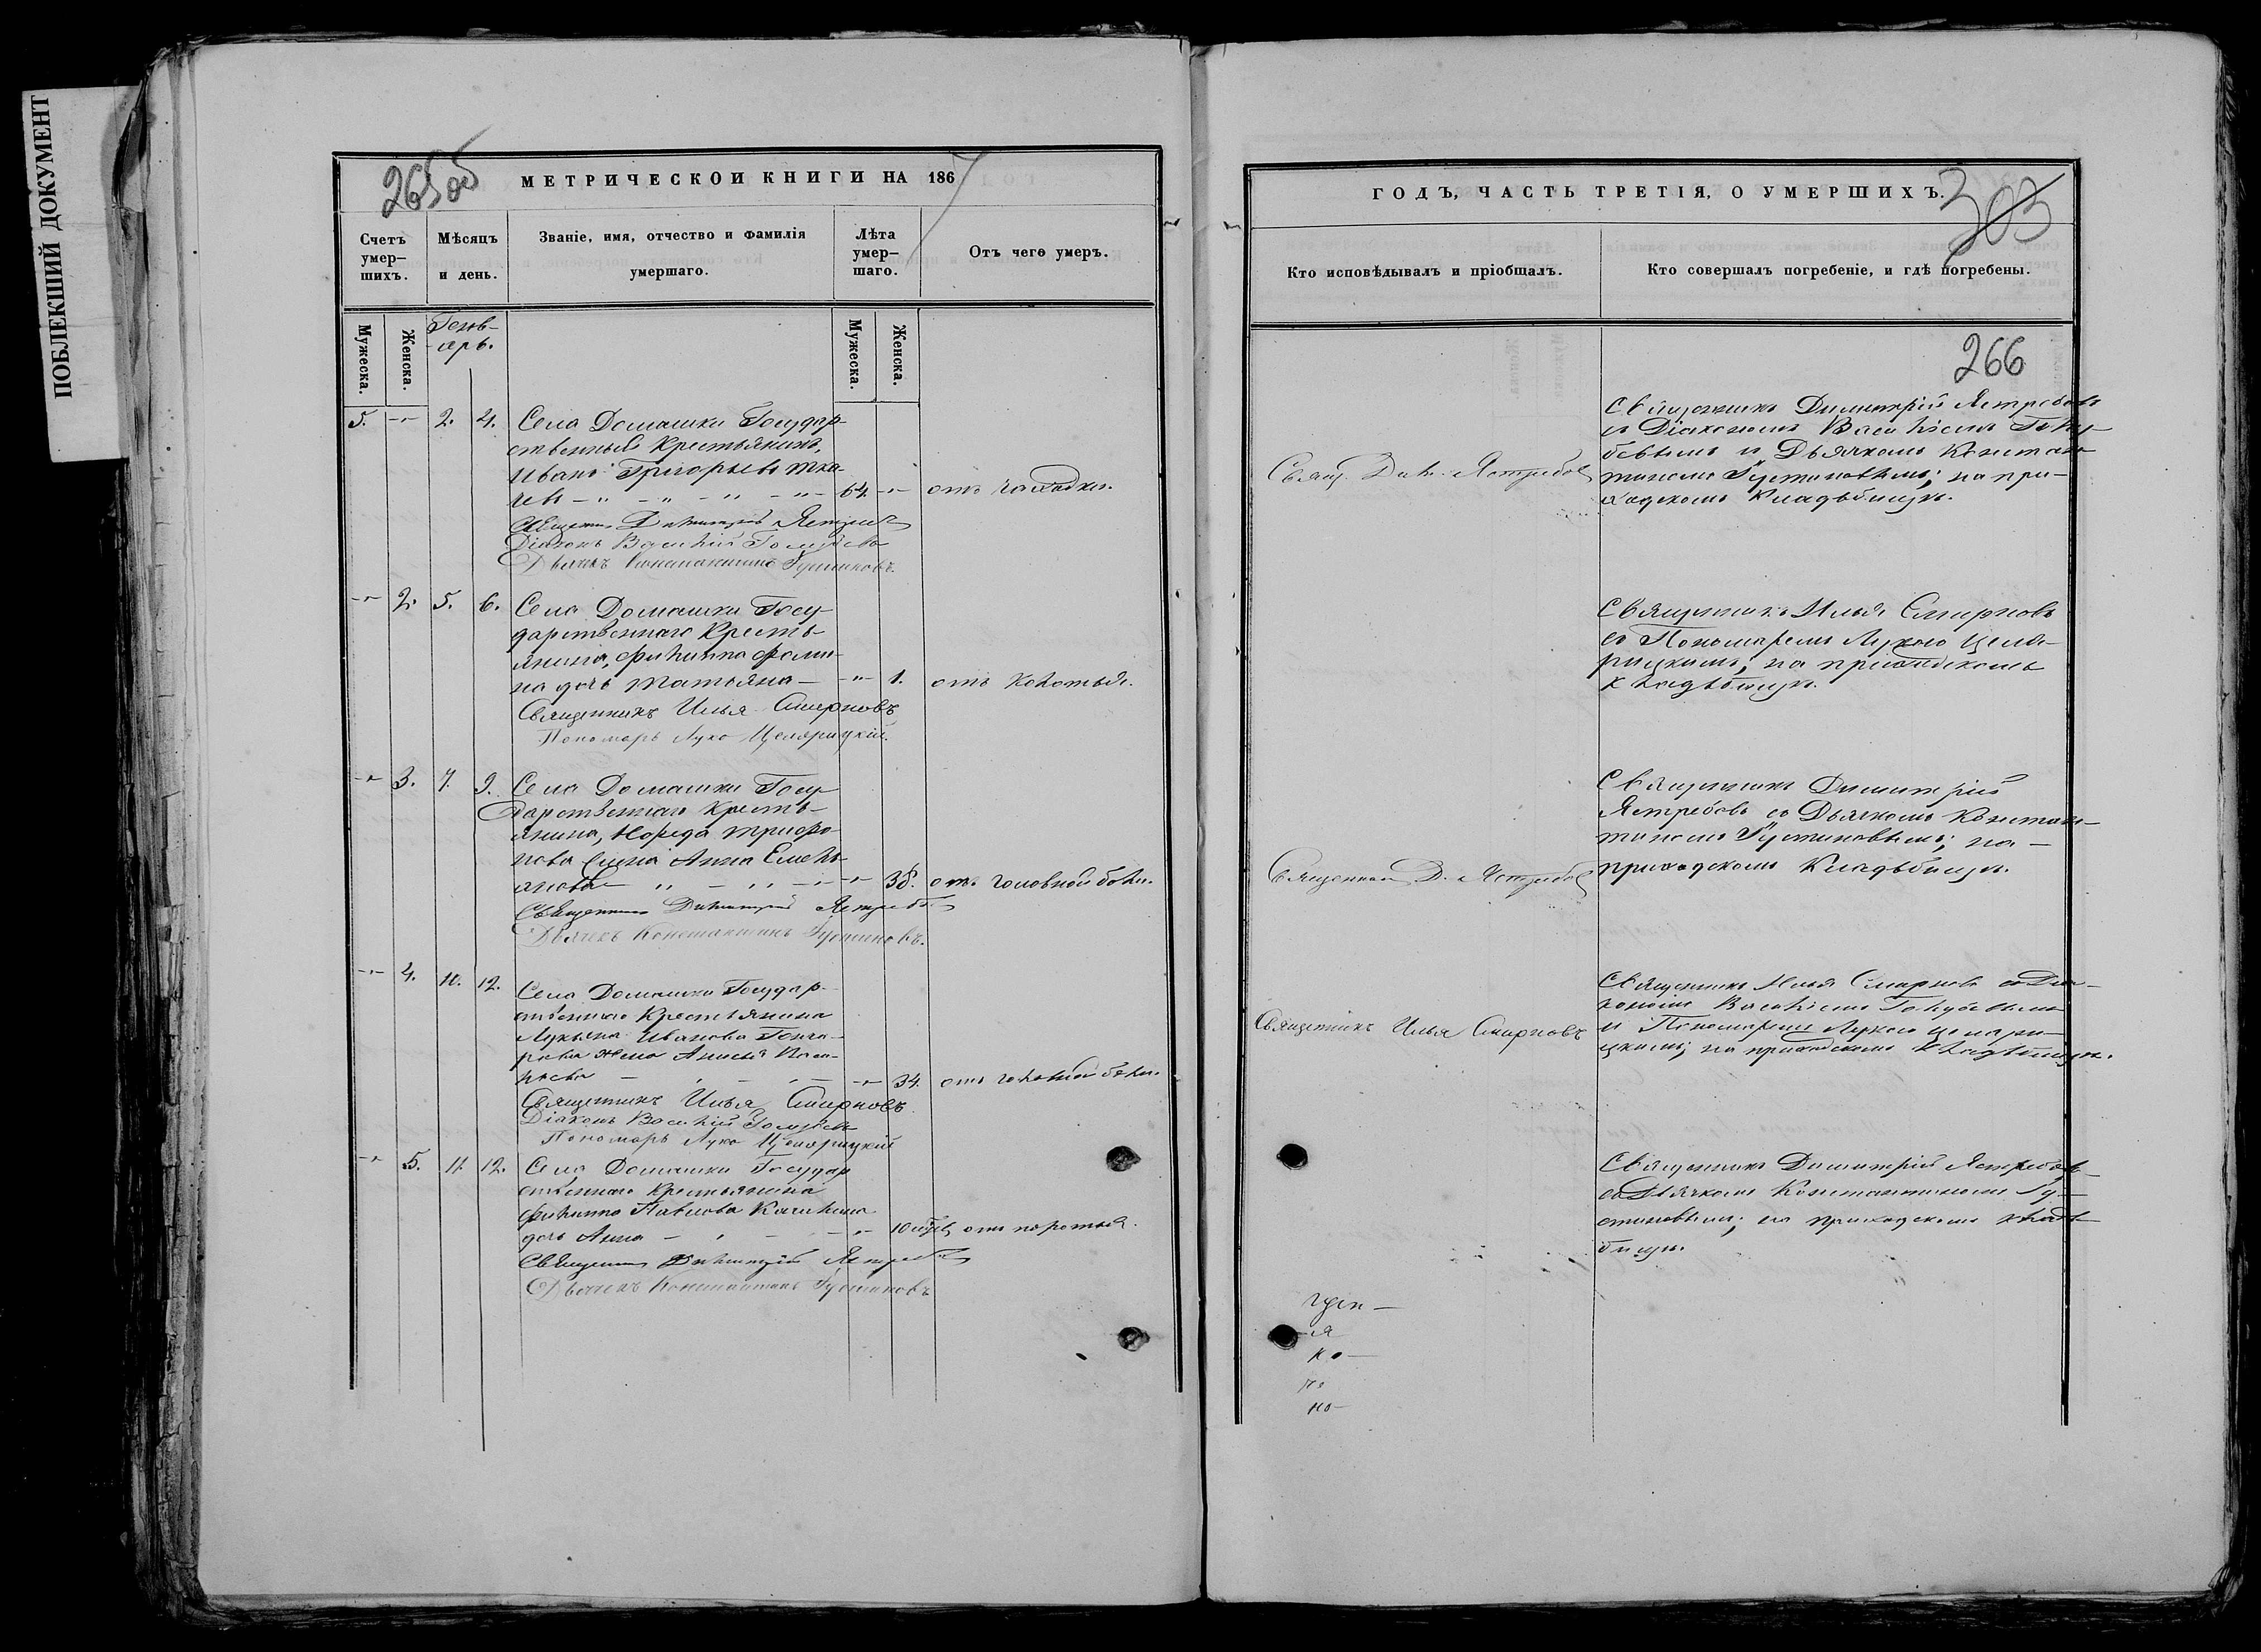 ПОБЛЕКШИЙ ДОКУМЕНТ
265об
МЕТРИЧЕСКОЙ КНИГИ НА 1867
Счетъ умер–шихъ.
Мѣсяцъ и день.
Званіе, имя, отчество и фамилія умершаго.
Лѣта умер–шаго.
Отъ чего умеръ.
Мужеска.
Женска.
Генв–
арь.
Мужеска.
Женска.
5. 2. 4. Села Домашки Государ–
ственный Крестьянинъ,
Иванъ Григорьевъ Тка–
чевъ 64. отъ горячки.
Священникъ Димитрій Ястребовъ
Діаконъ Василій Голубевъ
Дьячекъ Константинъ Густиновъ.
2. 5. 6. Села Домашки Госу–
дарственнаго Кресть–
янина, Филиппа Фоми–
на дочь Татьяна 1. отъ колотья.
Священникъ Илья Смирновъ
Пономарь Лука Целярицкій.
3. 7. 9. Села Домашки Госу–
дарственнаго Кресть–
янина, Трифо–
нова жена Анна Емель–
янова 38. отъ головной боли.
Священникъ Димитрій Ястребовъ
Дьячекъ Константинъ Густиновъ.
4. 10. 12. Села Домашки Государ–
ственнаго Крестьянина
Лукьяна Иванова Гонча–
рова жена Анисья
34. отъ головной боли.
Священникъ Илья Смирновъ
Діаконъ Василій Голубевъ
Пономарь Лука Целярицкій
5. 11. 12. Села Домашки Государ
ственнаго Крестьянина
Филиппа Павлова
дочь Анна 10 отъ
Священникъ Димитрій Ястребовъ
Дьячекъ Константинъ Густиновъ
ГОДЪ, ЧАСТЬ ТРЕТІЯ, О УМЕРШИХЪ.
303
Кто исповѣдывалъ и пріобщалъ.
Кто совершалъ погребеніе, и гдѣ погребены.
266
Свящ. Дим. Ястребовъ
Священникъ Димитрій Ястребовъ
съ Діакономъ Василіемъ Голу–
бевымъ и Дьячкомъ Констан–
тиномъ Густиновымъ; на при–
ходскомъ Кладьбищѣ.
Священникъ Илья Смирновъ
съ Пономаремъ Лукою Целя–
рицкимъ; на приходскомъ
кладьбищѣ.
Священникъ Д. Ястребовъ
Священникъ Димитрій
Ястребовъ съ Дьячкомъ Констан–
тиномъ Густиновымъ; на –
приходскомъ Кладьбищѣ.
Священникъ Илья Смирновъ
Священникъ Илья Смирновъ съ Діа–
кономъ Василіемъ Голубевымъ
и Пономаремъ Лукою Целяри–
цкимъ; на приходскомъ кладьбищѣ.
Священникъ Димитрій Ястребовъ
съ Дьячкомъ Константиномъ Гу–
стиновымъ; на приходскомъ кладь–
бищѣ.